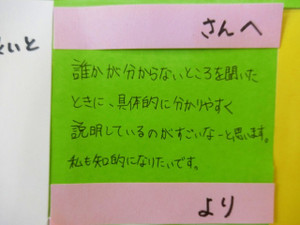 さんへ
誰かが分からないところを聞いた
ときに、具体的に分かりやすく
説明しているのがすごいなーと思います。
私も知的になりたいです。
より